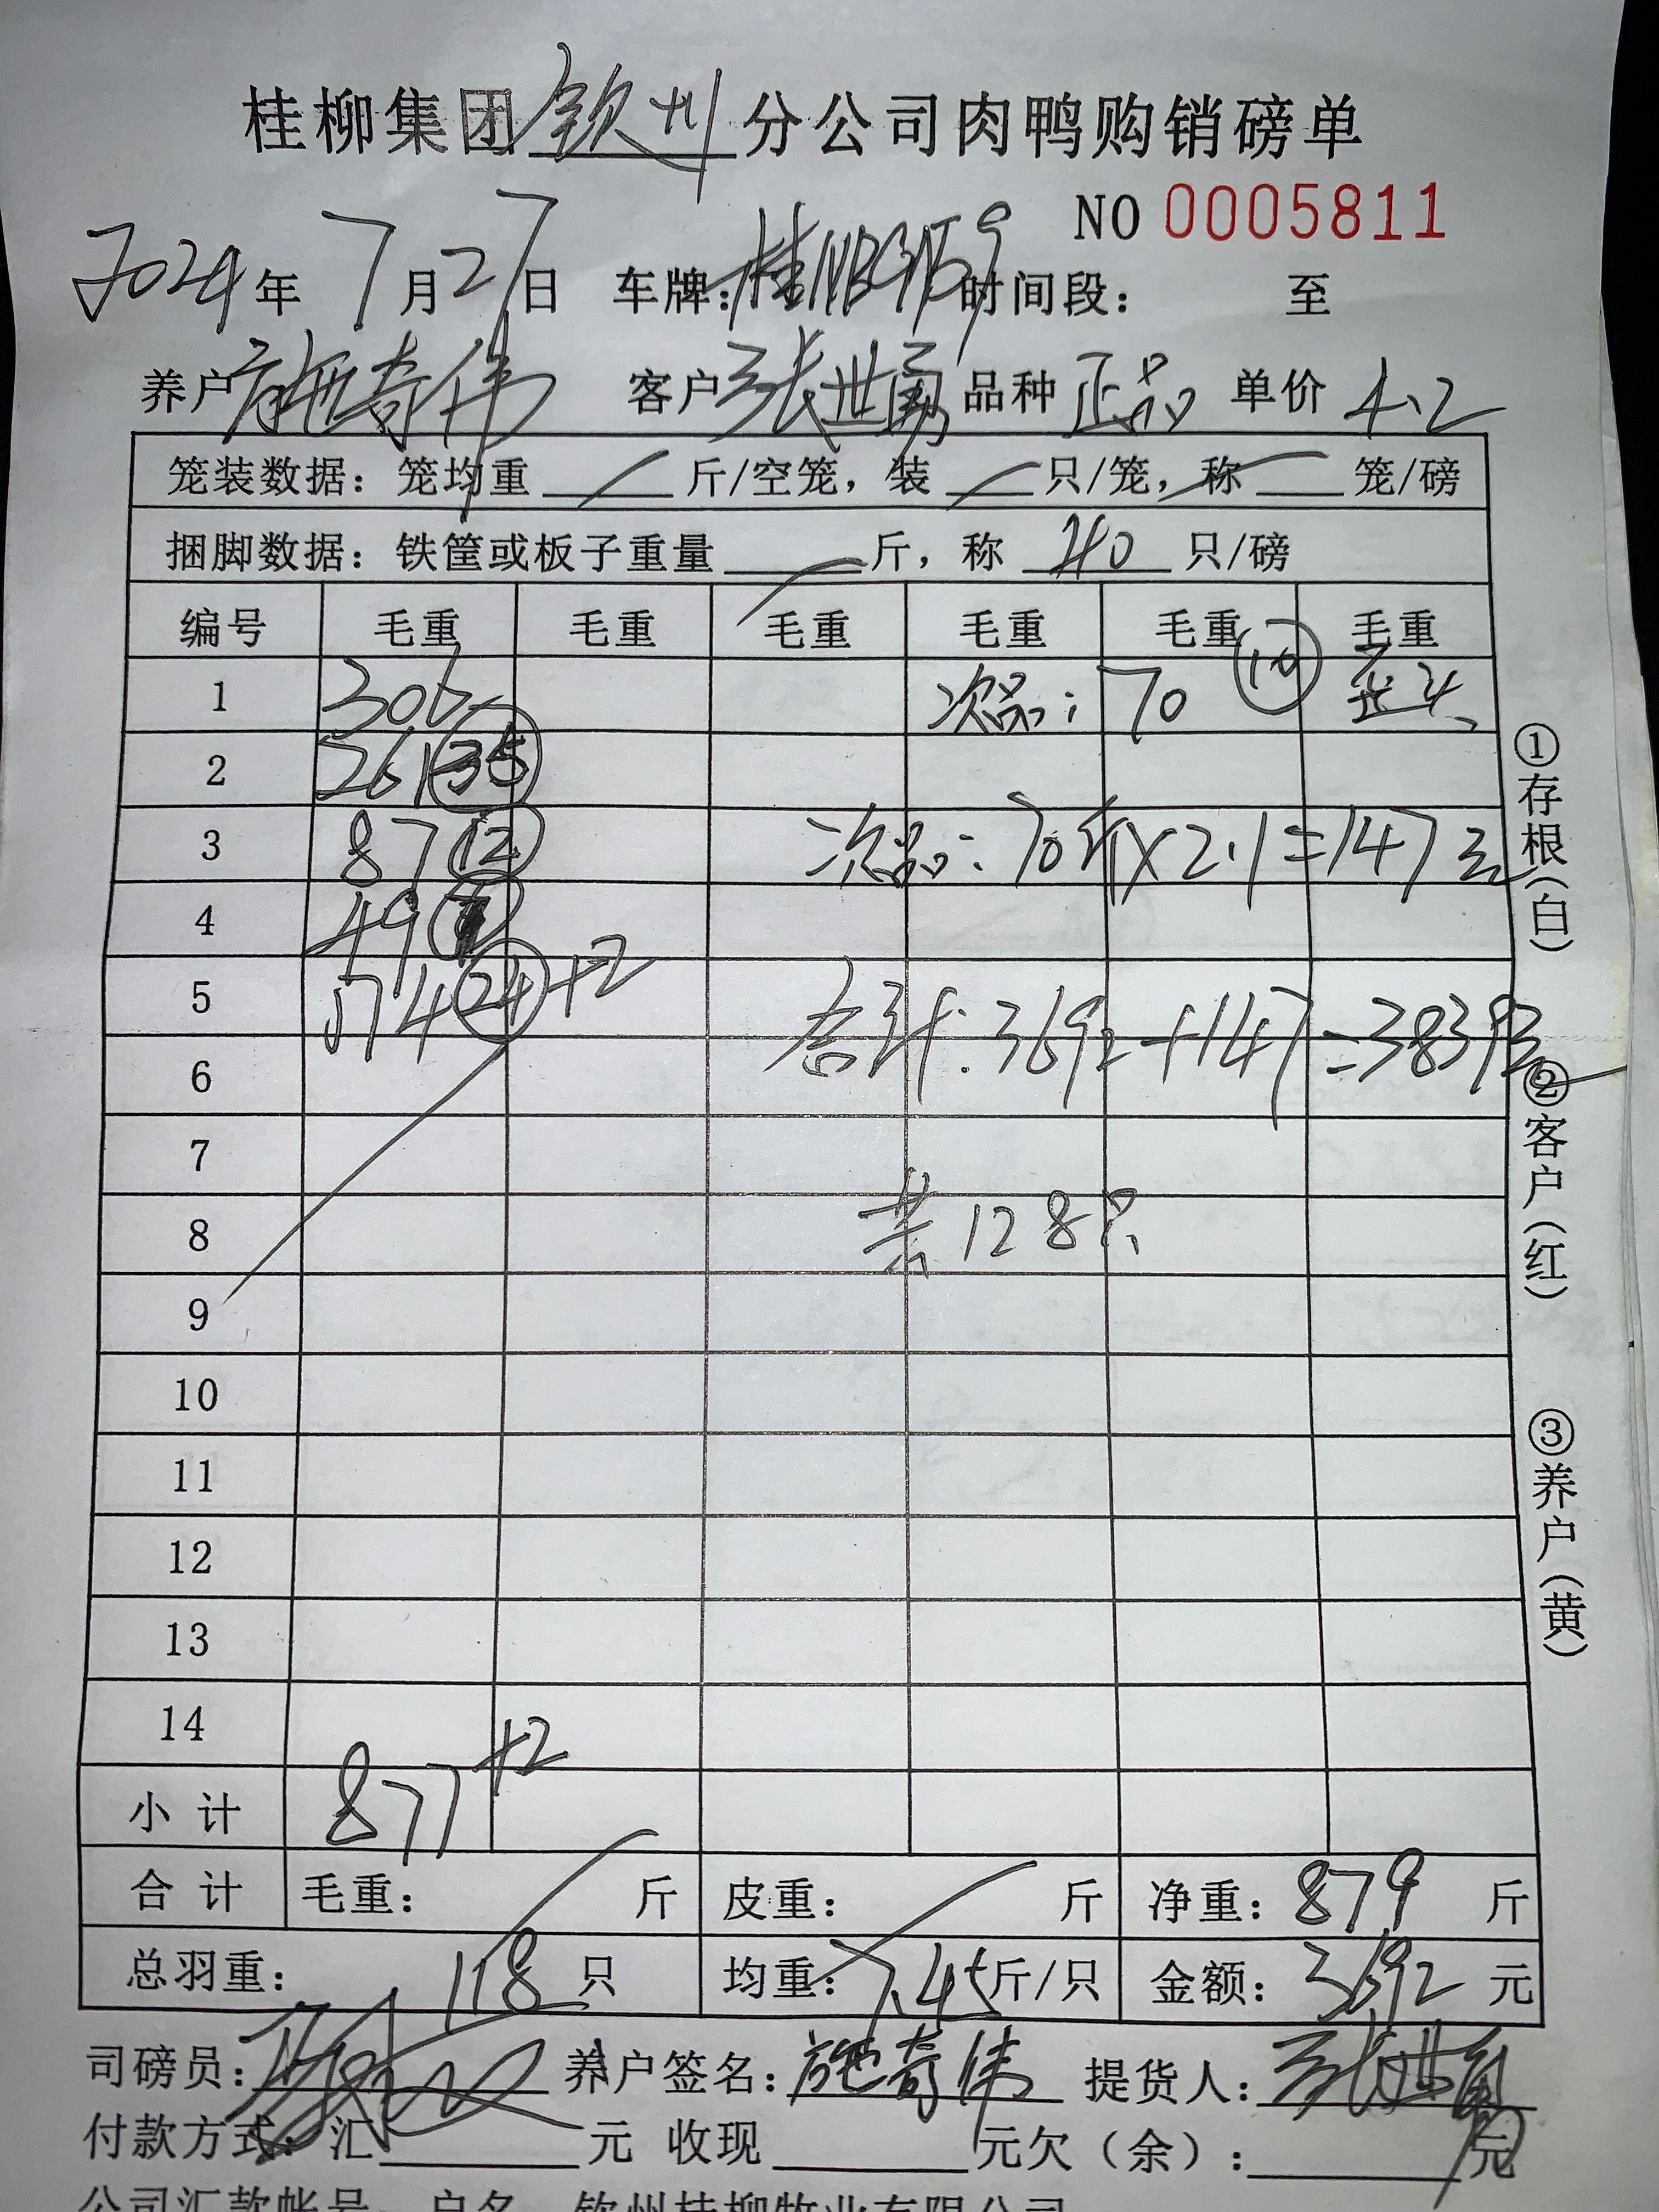 桂柳集团钦州分公司肉鸭购销磅单
NO 0005811
2024年 7月27日 车牌:桂 时间段: 至
养户施奇伟 客户张世勇 品种正品 单价4.2
笼装数据: 笼均重 斤/空笼, 装 只/笼, 称 笼/磅
捆脚数据: 铁筐或板子重量 斤, 称 40 只/磅
编号 毛重 毛重 毛重 毛重 毛重 毛重
1 306 次品: 70 10
2 261 35
3 87 12 次品: 70斤×2.1=147元
4 49
5 174 24 +2 合计: 3692+147=3839元
6
7
8 共128只
9
10
11
12
13
14
小计 877 +2
合计 毛重: 斤 皮重: 斤 净重: 879 斤
总羽重: 118 只 均重: 7.45斤/只 金额: 3692 元
司磅员: 养户签名: 施奇伟 提货人: 张世勇
付款方式: 汇 元 收现 元欠(余): 元
公司汇款帐号 户名 钦州桂柳牧业有限公司
①存根(白)
②客户(红)
③养户(黄)